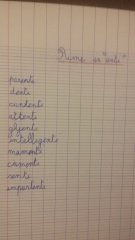 Rime en "enti"
parenti
denti
candenti
attenti
assenti
intelligenti
momenti
cementi
senti
impertinenti